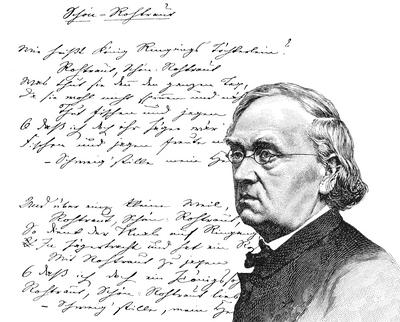 Schön-Rohtraut
Wie heißt König Ringangs Töchterlein?
Rohtraut, Schön-Rohtraut
Was thut sie denn den ganzen Tag,
Da sie wohl nicht spinnen und
Thut fischen und jagen
O daß ich doch ihr Jäger wär
Fischen und jagen freute
– Schweig' stille, mein
Und über eine kleine Weil,
Rohtraut, Schön-Rohtraut
So dient der Knab auf Ringangs
In Jägertracht und hat ein
Mit Rohtraut zu jagen
O daß ich doch ein
Rohtraut, Schön-Rohtraut lieb
– Schweig' stille, mein